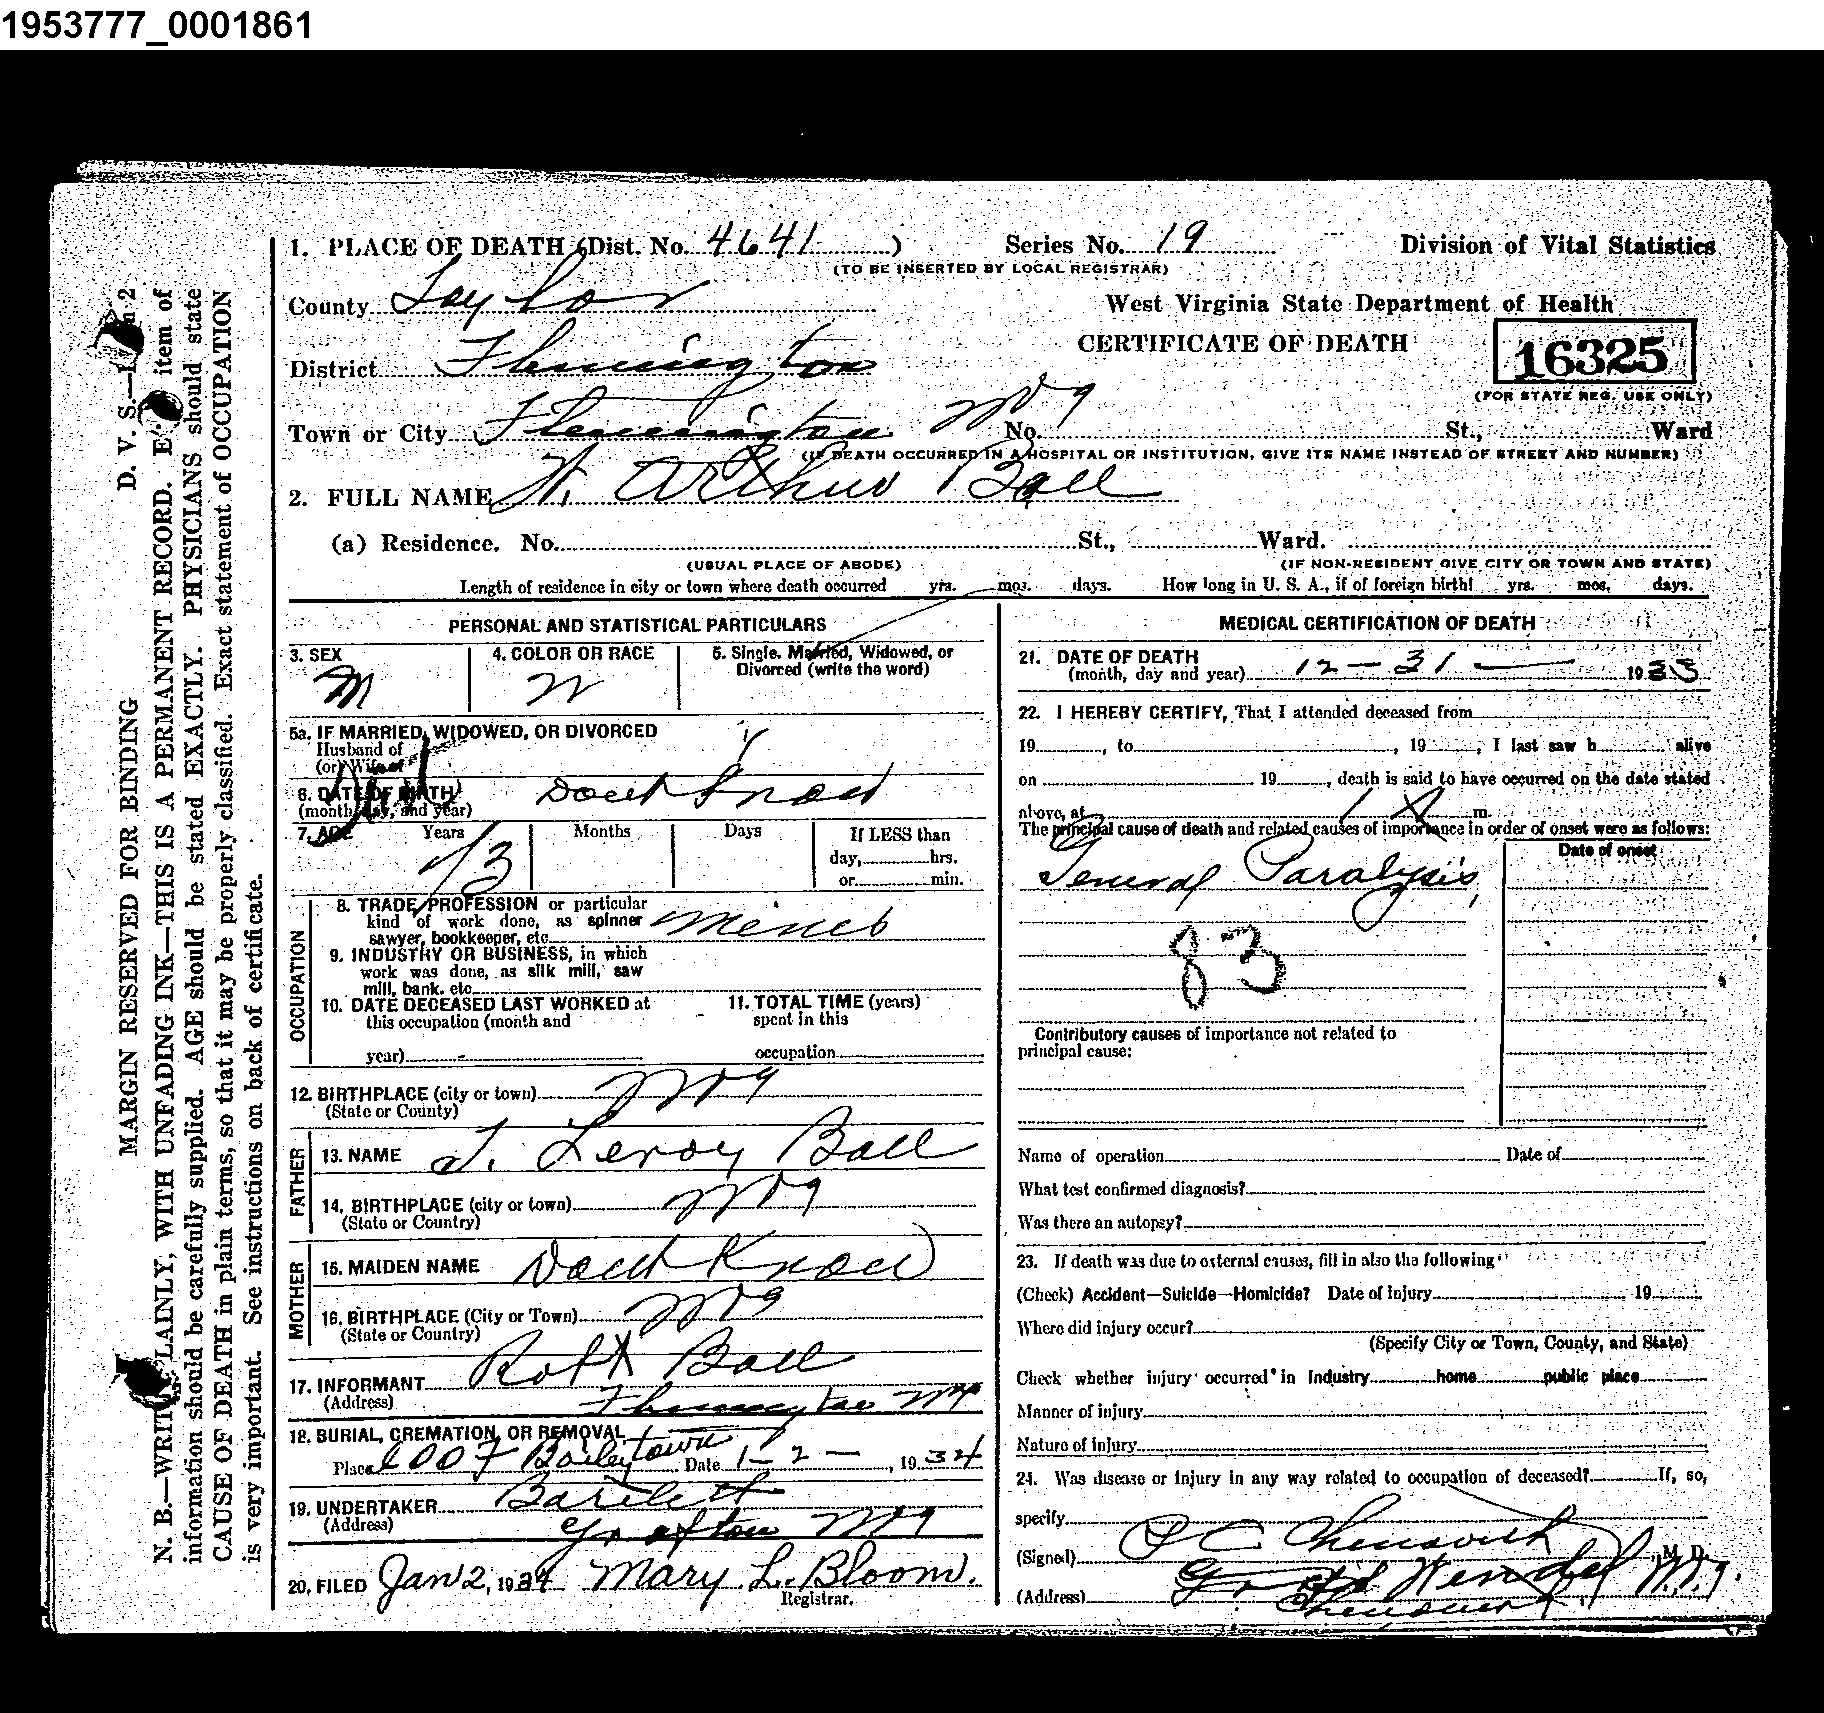 1953777_0001861
1. PLACE OF DEATH (Dist. No. 4641 ) Series No. 19 Division of Vital Statistics
(TO BE INSERTED BY LOCAL REGISTRAR)
County Taylor West Virginia State Department of Health
CERTIFICATE OF DEATH
16325
District Flemington
(FOR STATE REG. USE ONLY)
Town or City Flemington W Va No. St., Ward
(IF DEATH OCCURRED IN A HOSPITAL OR INSTITUTION, GIVE ITS NAME INSTEAD OF STREET AND NUMBER)
2. FULL NAME Arthur Ball
(a) Residence. No. St., Ward.
(USUAL PLACE OF ABODE) (IF NON-RESIDENT GIVE CITY OR TOWN AND STATE)
Length of residence in city or town where death occurred yrs. mos. days. How long in U. S. A., if of foreign birth? yrs. mos. days.
PERSONAL AND STATISTICAL PARTICULARS
3. SEX 4. COLOR OR RACE 5. Single, Married, Widowed, or
Divorced (write the word)
M W
5a. IF MARRIED, WIDOWED, OR DIVORCED
Husband of
(or) Wife of
6. DATE OF BIRTH Dont Know
(month, day, and year)
7. AGE Years Months Days If LESS than
day, hrs.
or min.
73
8. TRADE, PROFESSION or particular
kind of work done, as spinner
sawyer, bookkeeper, etc. Miner
9. INDUSTRY OR BUSINESS, in which
work was done, as silk mill, saw
mill, bank. etc.
10. DATE DECEASED LAST WORKED at 11. TOTAL TIME (years)
this occupation (month and spent in this
year) occupation
OCCUPATION
12. BIRTHPLACE (city or town) W Va
(State or County)
FATHER
13. NAME J. Leroy Ball
14. BIRTHPLACE (city or town) W Va
(State or Country)
MOTHER
15. MAIDEN NAME Dont Know
16. BIRTHPLACE (City or Town) W Va
(State or Country)
17. INFORMANT Robt Ball
(Address) Flemington W Va
18. BURIAL, CREMATION, OR REMOVAL
Place I O O F Baileytown Date 1-2-, 1934
19. UNDERTAKER Bartlett
(Address) Grafton W Va
20. FILED Jan 2, 1934 Mary L. Bloom.
Registrar.
MEDICAL CERTIFICATION OF DEATH
21. DATE OF DEATH
(month, day and year) 12-31- 1933
22. I HEREBY CERTIFY, That I attended deceased from
19 , to , 19 , I last saw h alive
on 19 , death is said to have occurred on the date stated
above, at 1 A m.
The principal cause of death and related causes of importance in order of onset were as follows:
Date of onset
General Paralysis,
83
Contributory causes of importance not related to
principal cause:
Name of operation Date of
What test confirmed diagnosis?
Was there an autopsy?
23. If death was due to external causes, fill in also the following
(Check) Accident—Suicide—Homicide? Date of Injury 19
Where did injury occur?
(Specify City or Town, County, and State)
Check whether injury occurred in Industry home public place
Manner of injury
Nature of injury
24. Was disease or injury in any way related to occupation of deceased? If, so,
specify
(Signed) , M. D.
(Address) W. Va.
MARGIN RESERVED FOR BINDING D. V. S.
N. B.—WRITE PLAINLY, WITH UNFADING INK—THIS IS A PERMANENT RECORD. item of
information should be carefully supplied. AGE should be stated EXACTLY. PHYSICIANS should state
CAUSE OF DEATH in plain terms, so that it may be properly classified. Exact statement of OCCUPATION
is very important. See instructions on back of certificate.